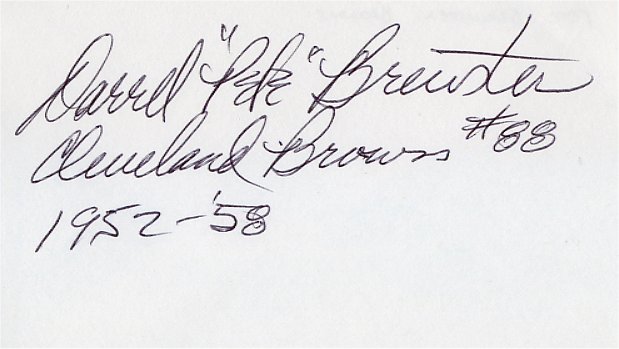 Darrel "Pete" Brewster
Cleveland Browns #88
1952-'58